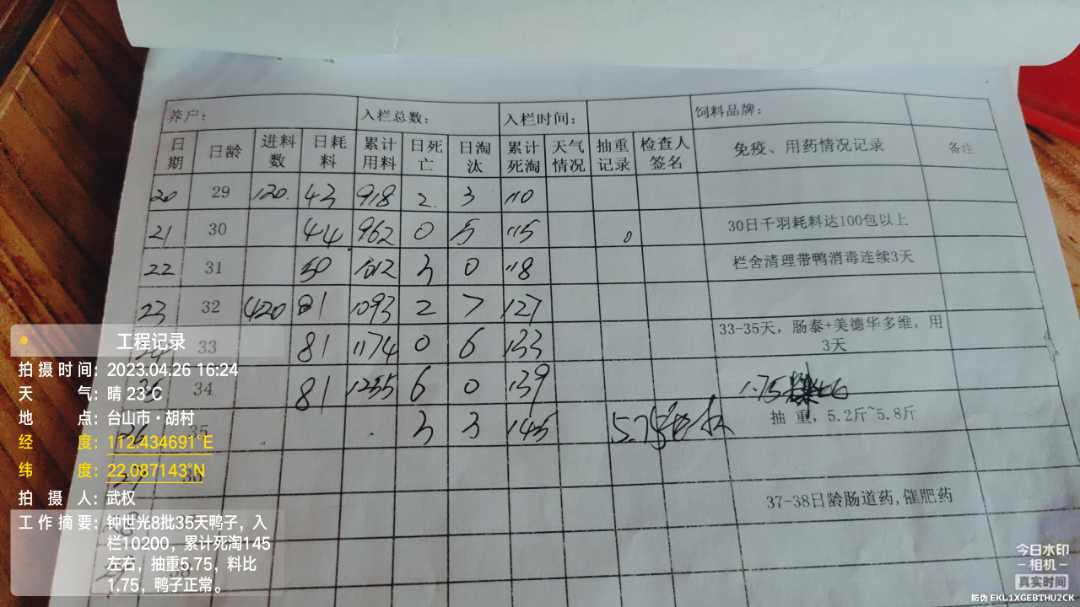 养户： 入栏总数： 入栏时间： 饲料品牌：
日期 日龄 进料数 日耗料 累计用料 日死亡 日淘汰 累计死淘 天气情况 抽重记录 检查人签名 免疫、用药情况记录 备注
20 29 120. 43 918 2 3 110
21 30 44 962 0 5 115 30日千羽耗料达100包以上
22 31 50 1012 3 0 118 栏舍清理带鸭消毒连续3天
23 32 420 81 1093 2 7 127
33 81 1174 0 6 133 33-35天，肠泰+美德华多维，用3天
34 81 1255 6 0 139 1.75
35 3 3 145 5.75 抽重，5.2斤~5.8斤
37-38日龄肠道药,催肥药
工程记录
拍摄时间：2023.04.26 16:24
天气：晴 23℃
地点：台山市·胡村
经度：112.434691°E
纬度：22.087143°N
拍摄人：武权
工作摘要：钟世光8批35天鸭子，入
栏10200，累计死淘145
左右，抽重5.75，料比
1.75，鸭子正常。
今日水印
-相机-
真实时间
防伪 EKL1XGEBTHU2CK